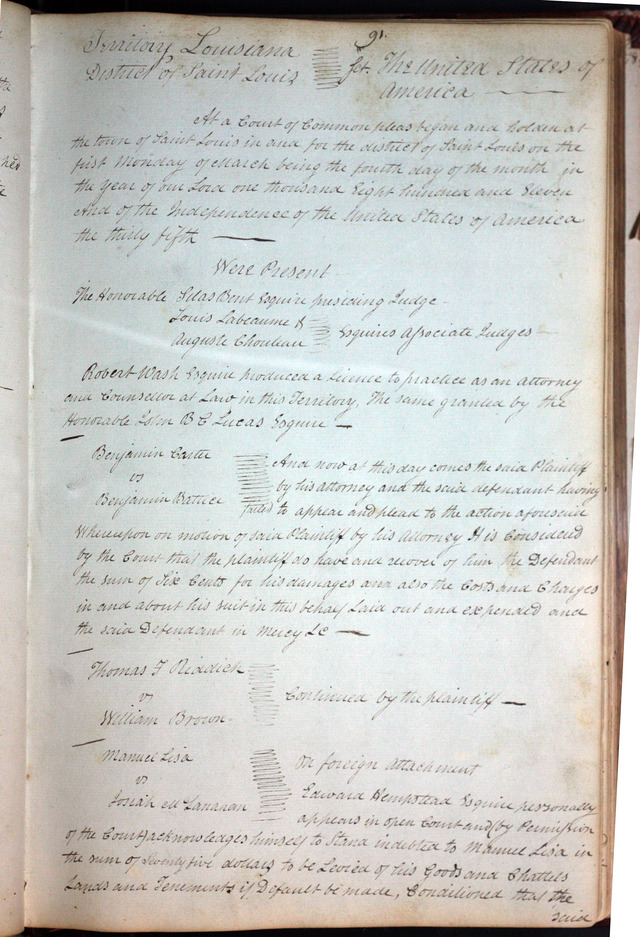 91.
Territory Louisiana
District of Saint Louis
Sct. The United States of
America
At a Court of Common pleas began and holden at
the town of Saint Louis in and for the district of Saint Louis on the
first Monday of March being the fourth day of the month in
the Year of our Lord one thousand Eight hundred and Eleven
And of the Independence of the United States of America
the thirty fifth —
Were Present
The Honorable Silas Bent Esquire presiding Judge
Louis Labeaume &
Auguste Chouteau
Esquires Associate Judges —
Robert Wash Esquire produced a licence to practice as an attorney
and Counsellor at Law in this Territory, The same granted by the
Honorable John B C Lucas Esquire —
Benjamin Carter
vs
Benjamin
And now at this day comes the said Plaintiff
by his attorney and the said defendant having
failed to appear and plead to the action aforesaid
Whereupon on motion of said Plaintiff by his Attorney It is Considered
by the Court that the plaintiff do have and recover of him the Defendant
the sum of Six Cents for his damages and also the Costs and Charges
in and about his suit in this behalf Laid out and expended and
the said Defendant in Mercy &c —
Thomas F Riddick
vs
William Brown
Continued by the plaintiff —
Manuel Lisa
vs
Josiah
On foreign attachment
Edward Hempstead Esquire personally
appears in open Court and (by Permission
of the Court) acknowledges himself to Stand indebted to Manuel Lisa in
the sum of Seventy five dollars to be Levied of his Goods and Chattels
Lands and Tenements if Default be made, Conditioned that the
said